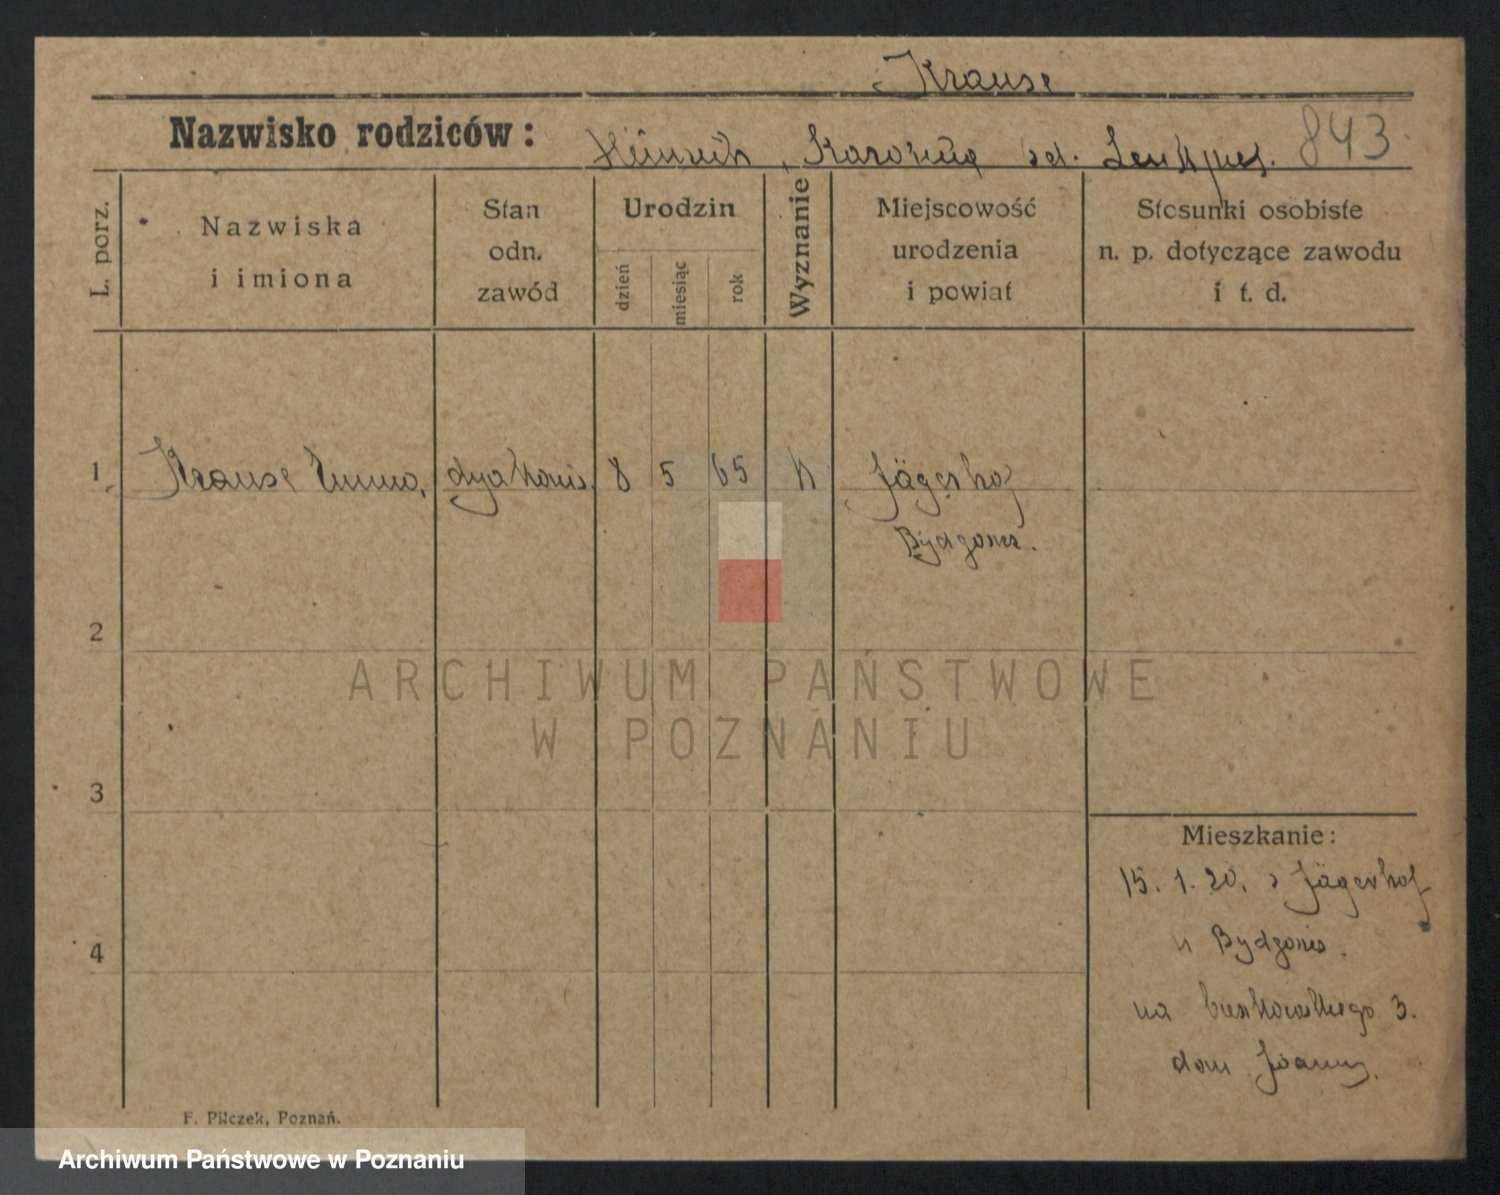 Krause
Nazwisko rodziców:
843
L. porz.
Nazwiska
i imiona
Stan
odn.
zawód
Urodzin
dzień
miesiąc
rok
Wyznanie
Miejscowość
urodzenia
i powiat
Stosunki osobiste
n. p. dotyczące zawodu
i t. d.
1 Krause Emma, dyakonis. 8 5 65 Jägerhof
Bydgoszcz.
2
ARCHIWUM PAŃSTWOWE
W POZNANIU
3
Mieszkanie:
15. 1. 20. z Jägerhof
Bydgoszcz.
4
na 3.
dom Joanny.
F. Pilczek, Poznań.
Archiwum Państwowe w Poznaniu